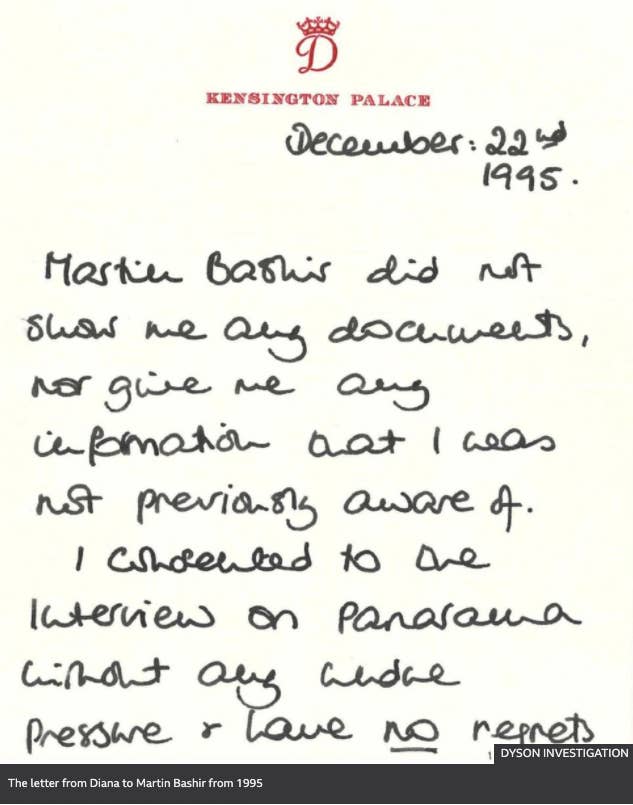 D
KENSINGTON PALACE
December: 22nd
1995.
Martin Bashir did not
show me any documents,
nor give me any
information that I was
not previously aware of.
I consented to the
interview on Panorama
without any undue
pressure & have no regrets
DYSON INVESTIGATION
The letter from Diana to Martin Bashir from 1995